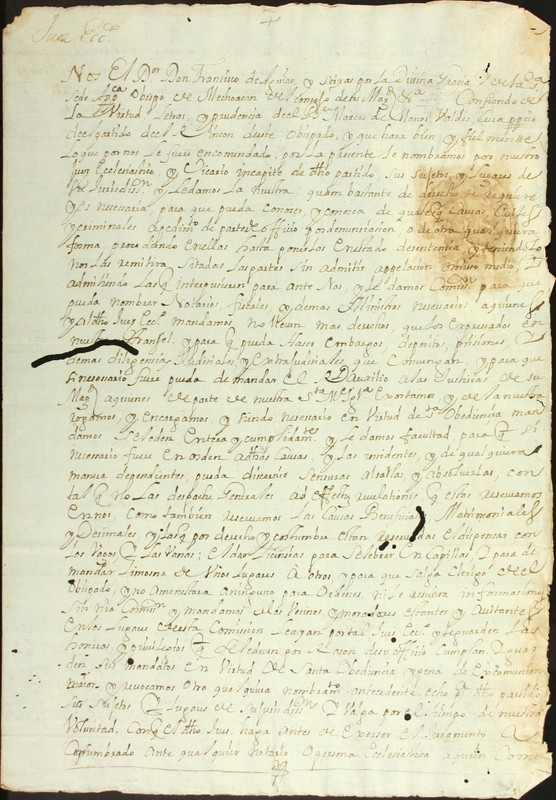 Juez Ecc.
Nos El D.or Don Fransisco de Aguiar, y Seixas por la Divina Gracia y de la S.ta
Sede App.ca Obispo de Mechoacan del Consejo de su Mag.d &a Confiando de
La Virtud, letras, y prudencia del B.r Marcos de Llanos Valdes, Cura pp.rio
del partido del Rincon deste Obispado, y que hara bien y fielmente
Lo que por nos le fuere encomendado, por la presente le nombramos por nuestro
Juez Eclesiastico y Vicario incapite de dho partido, sus sujetos, y Lugares de
su Jurisdis.on y Le damos la nuestra, quam bastante de derecho se requiere
y es necesaria para que pueda conoser, y conosca de qualesq.r Causas, Civiles
y criminales a pedim.to de parte de officio por denunsiasion, o de otra qualquiera
forma, procediendo en ellas hasta ponerlas en estado de sentencia, y teniendolo
Nos las remitira, sitadas las partes sin admitir appelasion en juro medio
admitiendo Las q interpusieren para ante Nos, y le damos Comis.on para que
pueda nombrar Notarios, fiscales, y demas Ministros nesesarios, a quienes
y al dho Juez Ecc.o mandamos, no lleven mas derechos, que los expresados en
nuestro Aransel, y para q pueda haser embargos, depositos, prisiones, y
demas diligencias Judisiales y Extrajudisiales, que Convengan, y para que
si nesesario fuere pueda demandar el R.l Auxilio a las Justisias de su
Mag.d a quienes de parte de nuestra S.ta M.e Ygl.a Exortamos, y de la nuestra
Rogamos, y encargamos, y siendo nesesario en Virtud de S.ta Obediencia man
damos se le den Entera y cumplidam.te y le damos facultad, para q si
Nesesario fuere en orden a dhas Causas, y Las insidentes, y de qualquiera
manera dependientes, pueda discernir Sensuras alsarlas, y absolverlas, con
tal q no Las despache Generales ad effectum revelationis q estas reservamos
en nos, como tambien reservamos Las Causas Beneficiales, Matrimoniales
y Desimales y Las q por derecho y costumbre estan reservadas el dispensar con
Los Vagos, El dar Lisensias para Selebrar en Capillas, para de
mandar Limosna de Unos Lugares A otros, y para que Salga Clerigo de el
Obispado, y no Amonestara a ninguno para Ordenes, ni le resivira informasiones
Sin nra Comis.on y mandamos a los Vesinos y moradores estantes y avitantes
En los Lugares de esta Comision Tengan por tal Juez Ecc.o y le guarden Las
honrras y privilegios q se le devan por rason de su officio Cumplan y guar
den sus mandatos En Virtud de Santa Obediencia y pena de Excomunion
maior, y revocamos otro qualquiera nombram.to antesedente, echo p.a dho partido
sus sujetos y Lugares de su jurisdis.on y Valga por el tiempo de nuestra
Voluntad. Conq el dho Juez, haga antes de Exerser el Juramento A
Costumbrado Ante qualquier Notario o persona Ecclesiastica a quien Come